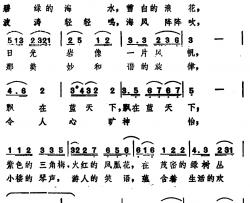 碧绿的海水，雪白的浪花，
波涛轻轻鸣，海风阵阵吹，
513 2321 25 12 3.3 2 3 6
日光岩像一片风帆，
那美妙和谐的旋律，
4.6 2 3432 2 5.5 356 616
飘在蓝天下，飘在蓝天下，
令人心旷神怡，
112 335 3 2.1 122 123 5.3 231
紫色的三角梅，火红的凤凰花，在茂密的绿树丛
小楼的琴声，游人的笑语，蕴含着生活的欢